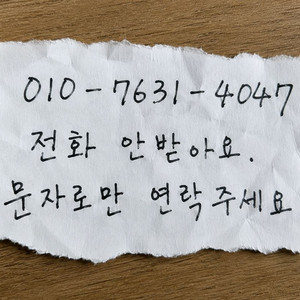 010-7631-4047
전화 안받아요.
문자로만 연락주세요